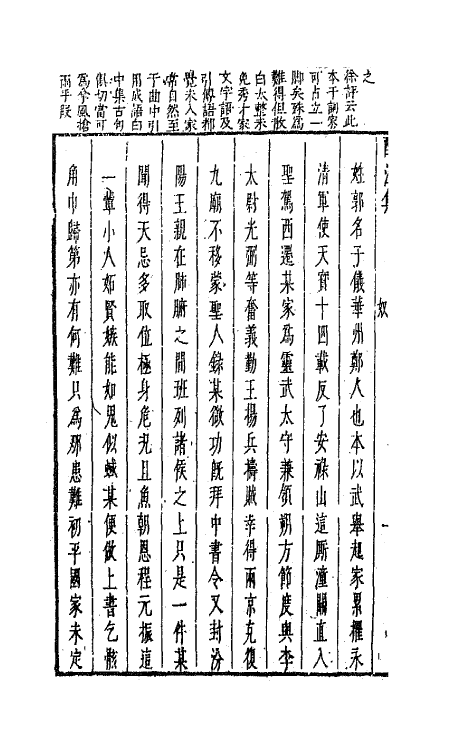 之
徐評云此
本于詞家
可占立一
脚矣殊為
難得但散
白太整未
免秀才家
文字語及
引傳語都
覺未入家
常自然至
于曲中引
用成語白
中集古句
俱切當可
為令風搶
兩平段
酣江集
姓郭名子儀華州鄭人也本以武舉起家累擢永
清軍使天寳十四載反了安祿山這厮潼關直入
聖駕西遷某家為靈武太守兼領朔方節度與李
太尉光弼等奮義勤王揚兵禱賊幸得兩京克復
九廟不移蒙聖人錄某微功既拜中書令又封汾
陽王親在肺腑之間班列諸侯之上只是一件某
聞得天忌多取位極身危况且魚朝恩程元振這
一輩小人妬賢嫉能如鬼似蜮某便做上書乞骸
角巾歸第亦有何難只為那患難初平國家未定